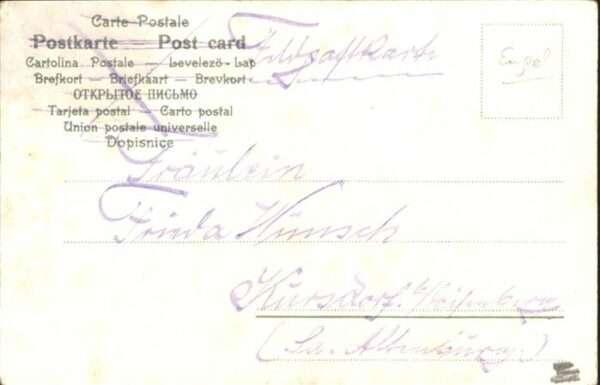 Carte Postale
Postkarte — Post card
Cartolina Postale — Levelezö-Lap
Brefkort — Briefkaart — Brevkort
ОТКРЫТОЕ ПИСЬМО
Tarjeta postal — Carto postal
Union postale universelle
Dopisnice
Feldpostkarte
Fräulein
Frieda Wünsch
Kursdorf b/Eisenberg
(Sa. Altenburg.)